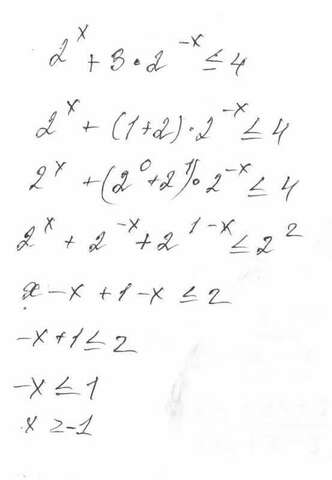 2^x + 3 · 2^-x ≤ 4
2^x + (1+2) · 2^-x ≤ 4
2^x + (2^0 + 2^1) · 2^-x ≤ 4
2^x + 2^-x + 2^1-x ≤ 2^2
x - x + 1 - x ≤ 2
-x + 1 ≤ 2
-x ≤ 1
x ≥ -1